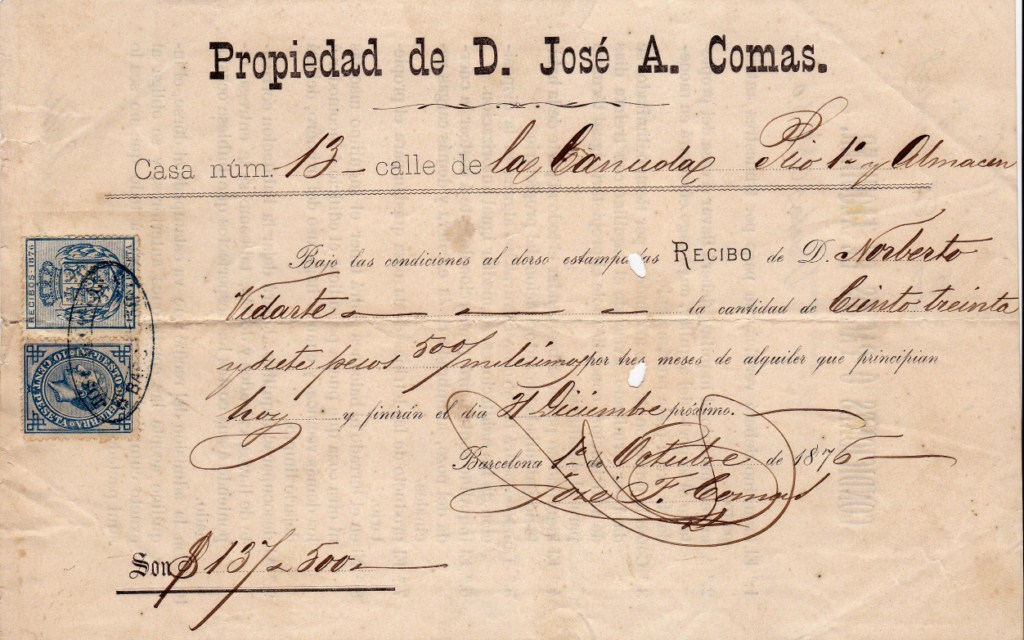 Propiedad de D. José A. Comas.
Casa núm. 13 - calle de la Canuda Piso 1º y Almacen
Bajo las condiciones al dorso estampadas RECIBO de D. Norberto
Vidarte la cantidad de Ciento treinta
y siete pesos 500/milésimos por tres meses de alquiler que principian
hoy y finirán el dia 31 Diciembre próximo.
Barcelona 1º de Octubre de 1876
José F. Comas
Son $ 137 500
RECIBOS - 1876
IMPUESTO DE GUERRA